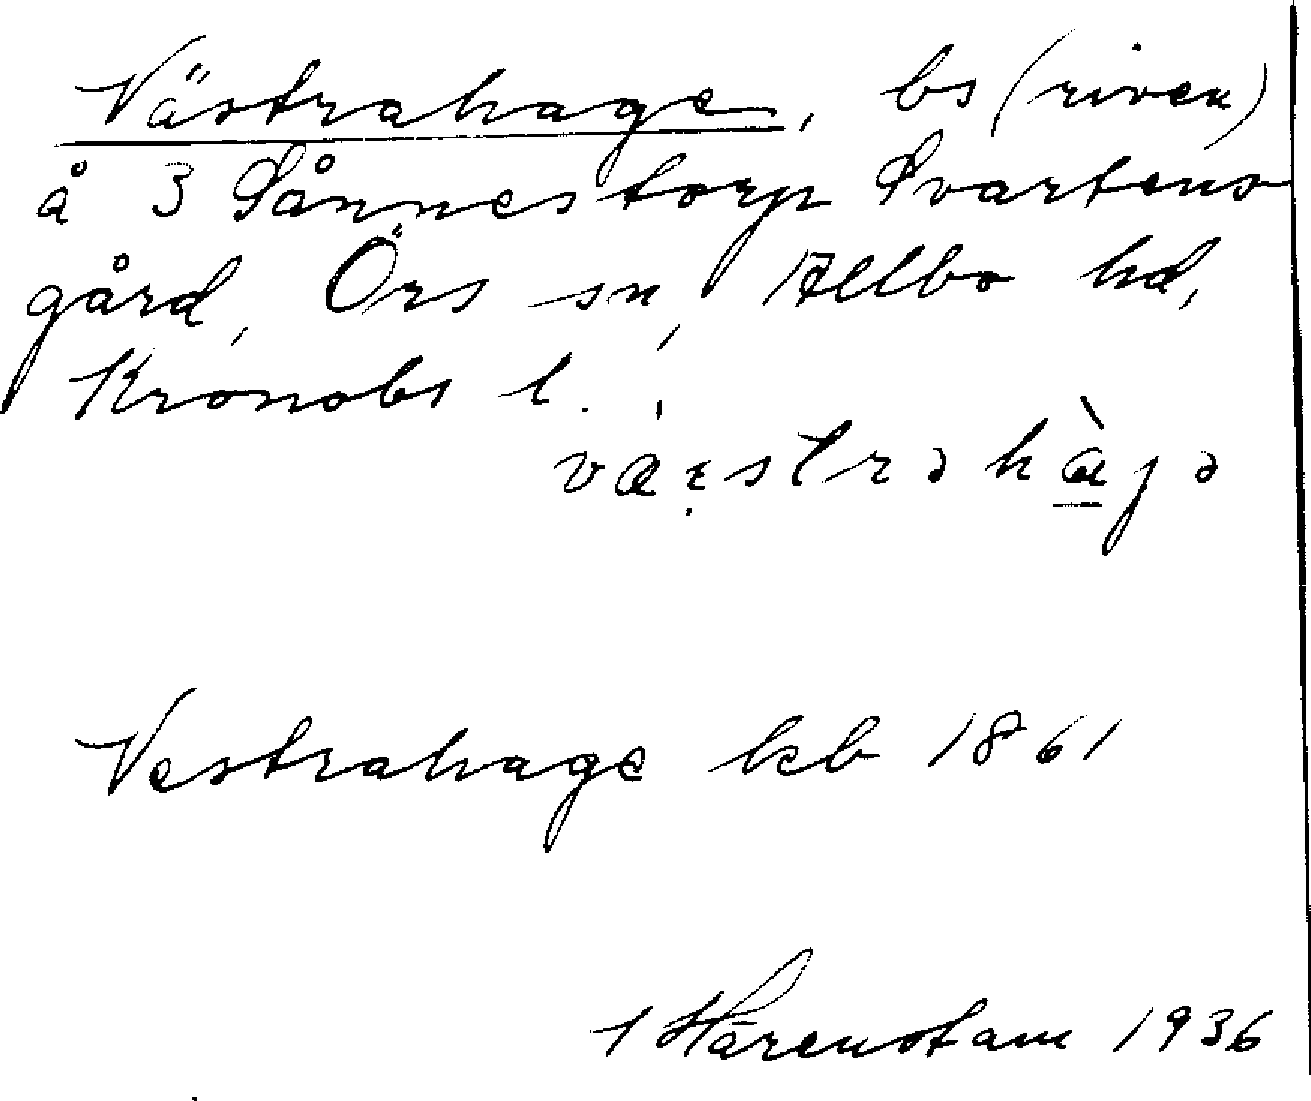 Västrahage, bs (riven)
å 3 Sånnestorp Svartens
gård, Örs sn, Allbo hd,
Kronobs l.
Vestrahage kb 1861
Härenstam 1936